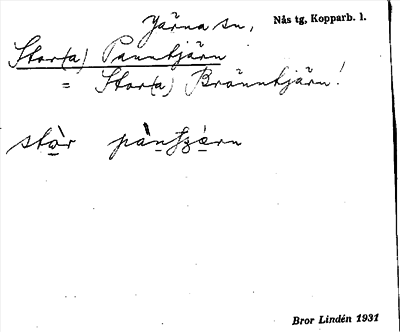 Järna sn,
Nås tg, Kopparb. l.
Stor(a) Panntjärn
= Stor(a) Bränntjärn!
stòr pàntjärn
Bror Lindén 1931